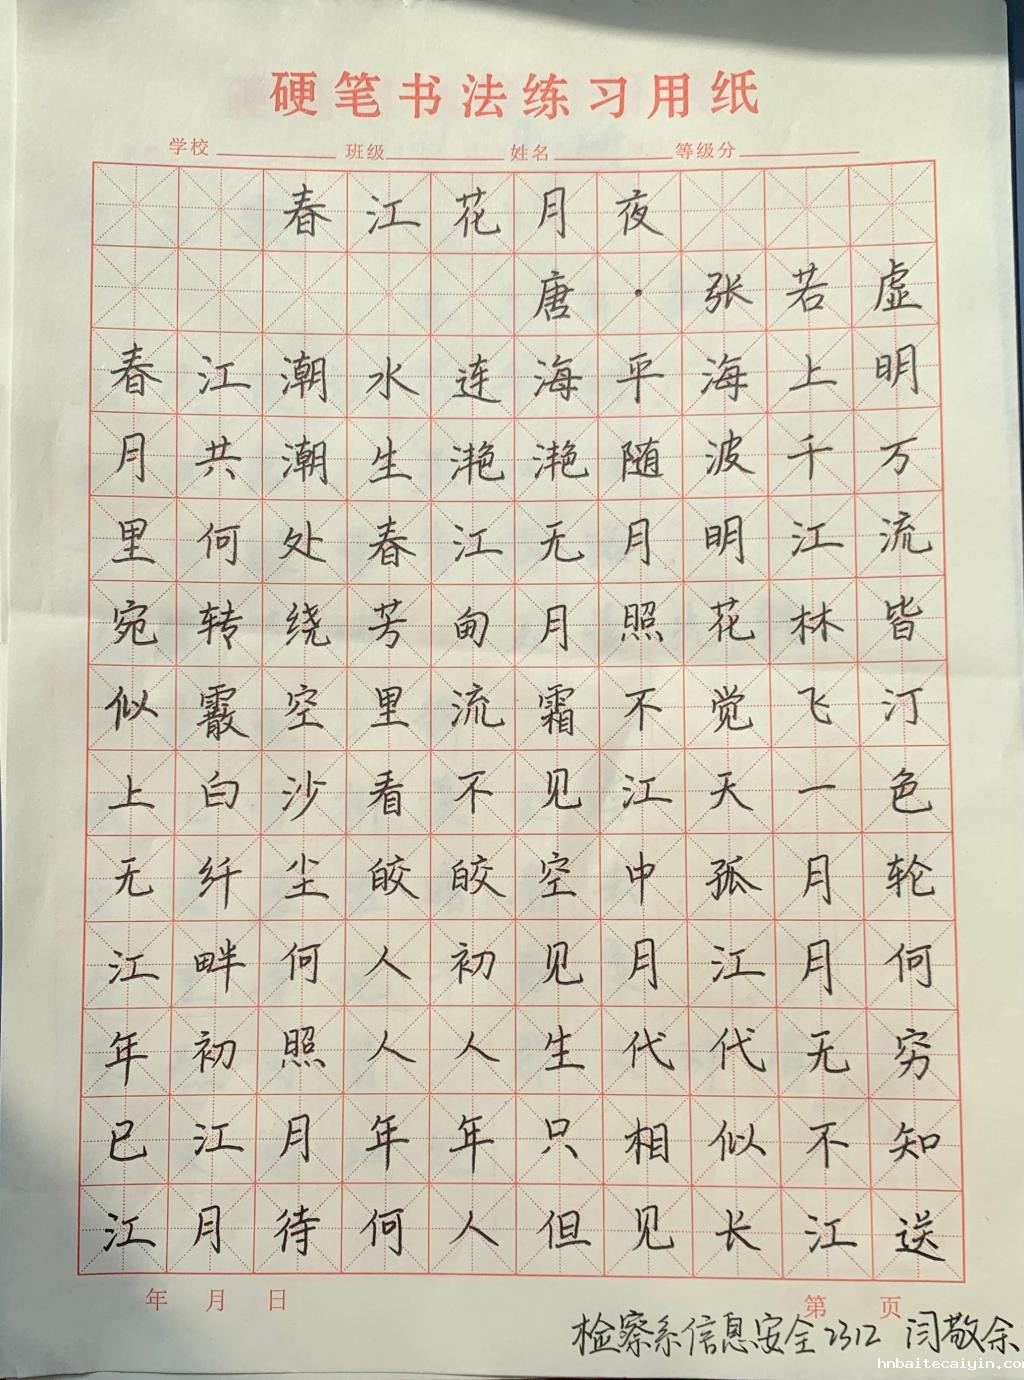 硬笔书法练习用纸
学校 班级 姓名 等级分
春江花月夜
唐·张若虚
春江潮水连海平海上明
月共潮生滟滟随波千万
里何处春江无月明江流
宛转绕芳甸月照花林皆
似霰空里流霜不觉飞汀
上白沙看不见江天一色
无纤尘皎皎空中孤月轮
江畔何人初见月江月何
年初照人人生代代无穷
已江月年年只相似不知
江月待何人但见长江送
年 月 日 第 页
检察系信息安全2312 闫敬余
hnbaitecaiyin.com